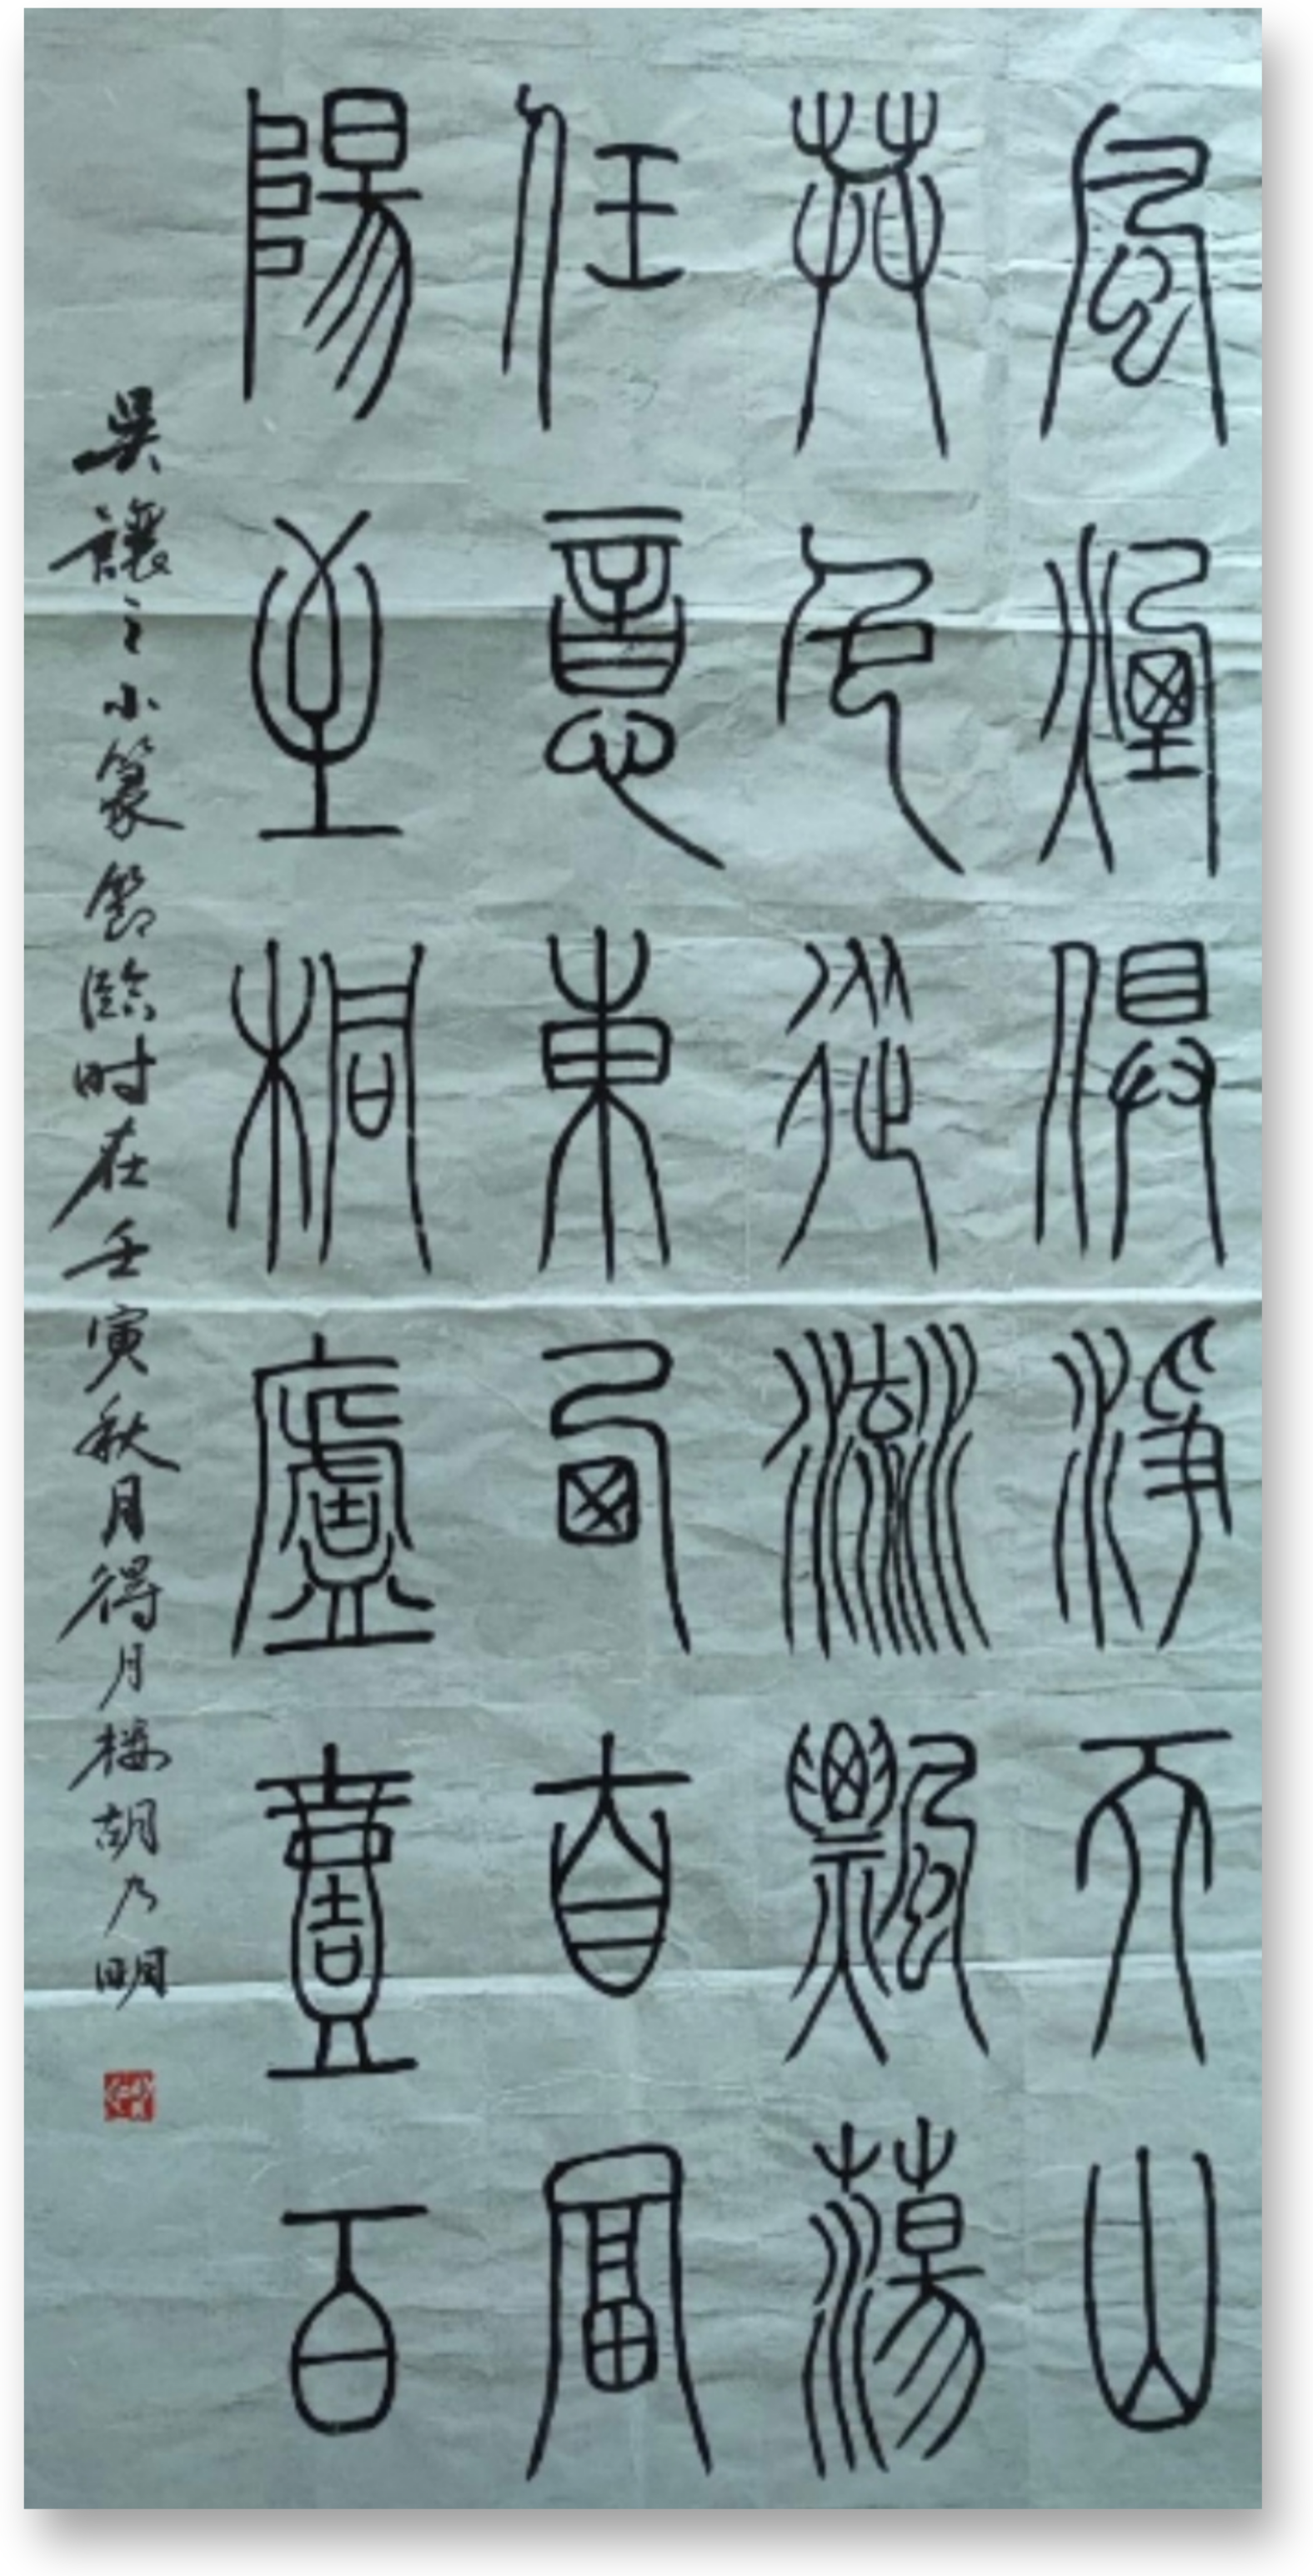 風煙俱淨天山
共色從流飄蕩
任意東西自富
陽至桐廬壹百
吳讓之小篆節臨時在壬寅秋月得月樓胡乃明